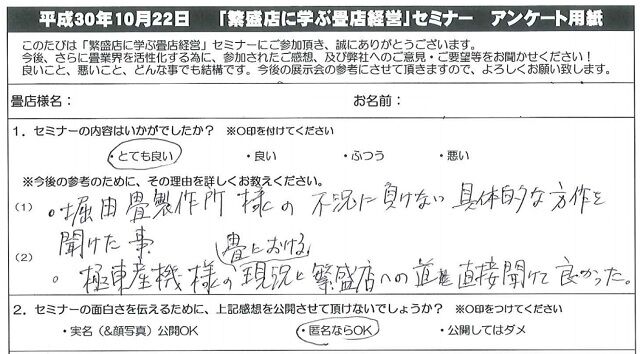 平成30年10月22日 「繁盛店に学ぶ畳店経営」セミナー アンケート用紙
このたびは「繁盛店に学ぶ畳店経営」セミナーにご参加頂き、誠にありがとうございます。
今後、さらに畳業界を活性化する為に、参加されたご感想、及び弊社へのご意見・ご要望等をお聞かせください！
良いこと、悪いこと、どんな事でも結構です。今後の展示会の参考にさせて頂きますので、よろしくお願い致します。
畳店様名： お名前：
1．セミナーの内容はいかがでしたか？ ※○印を付けてください
・とても良い ・良い ・ふつう ・悪い
※今後の参考のために、その理由を詳しくお教えください。
(1) 。堀田畳製作所 様の 不況に負けない 具体的な方作を
聞けた事
畳における
(2) 。極東産機様の現況と繁盛店への道を直接聞けて良かった。
2．セミナーの面白さを伝えるために、上記感想を公開させて頂けないでしょうか？ ※○印をつけてください
・実名（＆顔写真）公開OK ・匿名ならOK ・公開してはダメ